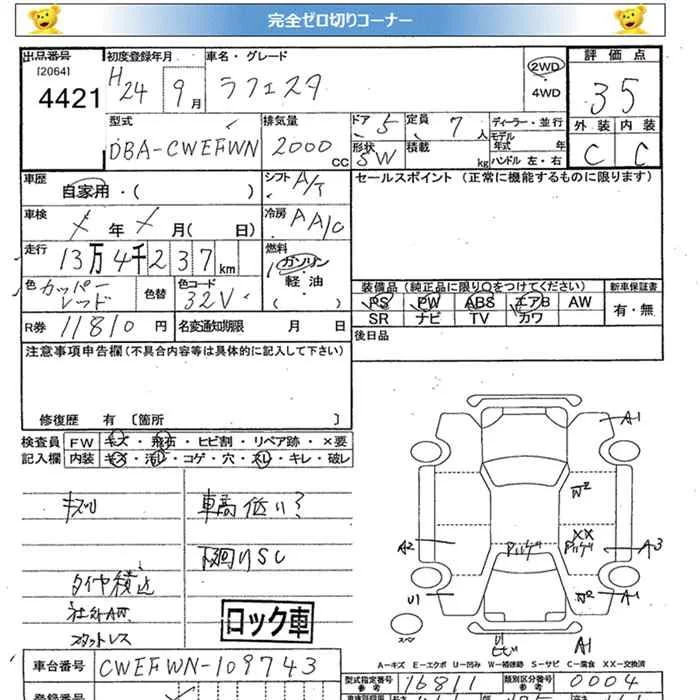 完全ゼロ切りコーナー
出品番号 初度登録年月 車名・グレード 2WD 評価点
[2064] 4421 H24 9月 ラフェスタ 4WD 35
型式 排気量 ドア 5 定員 7人 ディーラー・並行 外装 内装
DBA-CWEFWN 2000cc 形状 SW 積載 kg モデル年式 年 ハンドル 左・右 C C
車歴 自家用・( ) シフト A/T セールスポイント (正常に機能するものに限ります)
車検 メ年メ月( 日) 冷房 AA/C
走行 13万4千237km 燃料 ガソリン・軽油
色 カッパーレッド 色替 色コード 32V 装備品(純正品に限り〇をつけてください) 新車保証書
PS PW ABS エアB AW 有・無
SR ナビ TV カワ
R券 11810円 名変通知期限 月 日 後日品
注意事項申告欄(不具合内容等は具体的に記入して下さい)
修復歴 有 〔箇所 〕
検査員 FW キズ・飛石・ヒビ割・リペア跡・×要
記入欄 内装 キズ・汚レ・コゲ・穴・スレ・キレ・破レ
キズリ 車高低い?
下回りSC
タイヤ積込
社外AW
スタットレス
ロック車
A1
W2
XX
A2 Pハゲ Pハゲ A3
U1 W2 A1
スペ
U1 ヒビ A1
A-キズ E-エクボ U-凹み W-補修跡 S-サビ C-腐食 XX-交換済
車台番号 CWEFWN-109743 型式指定番号 参考 16811 類別区分番号 参考 0004
登録番号